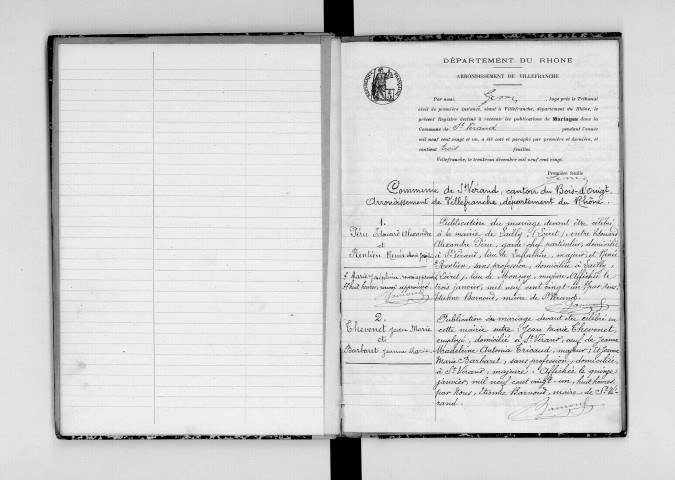 DÉPARTEMENT DU RHONE
ARRONDISSEMENT DE VILLEFRANCHE
Par nous, Juge près le Tribunal
civil de première instance, séant à Villefranche, département du Rhône, le
présent Registre destiné à recevoir les publications de Mariages dans la
Commune de St Vérand pendant l'année
mil neuf cent vingt et un, a été coté et paraphé par première et dernière, et
contient trois feuilles.
Villefranche, le trente-un décembre mil neuf cent vingt.
Première feuille
Commune de St Vérand, canton du Bois-d'Oingt,
Arrondissement de Villefranche, département du Rhône.
1.
Péru Edouard Alexandre
et
Rentien Renée
Publication du mariage devant être célébré
à la mairie de Lailly, (Loiret), entre Edouard
Alexandre Péru, garde chef particulier, domicilié
à St Vérand, lieu de majeur, et Renée
Rentien, sans profession, domiciliée à Lailly
(Loiret), lieu de majeure. Affichée le
trois janvier, mil neuf cent vingt-un, par Nous,
Etienne Barnoud, maire de St Vérand.
Barnoud
2.
Thevenet Jean Marie
et
Barbaret Jeanne Marie
Publication du mariage devant être célébré en
cette mairie entre Jean Marie Thevenet,
employé, domicilié à St Vérand, veuf de Jeanne
Madeleine Antonia Tricaud, majeur; et Jeanne
Marie Barbaret, sans profession, domiciliée
à St Vérand, majeure. Affichée le quinze
janvier, mil neuf cent vingt-un, huit heures,
par Nous, Etienne Barnoud, maire de St Vé-
rand.
Barnoud